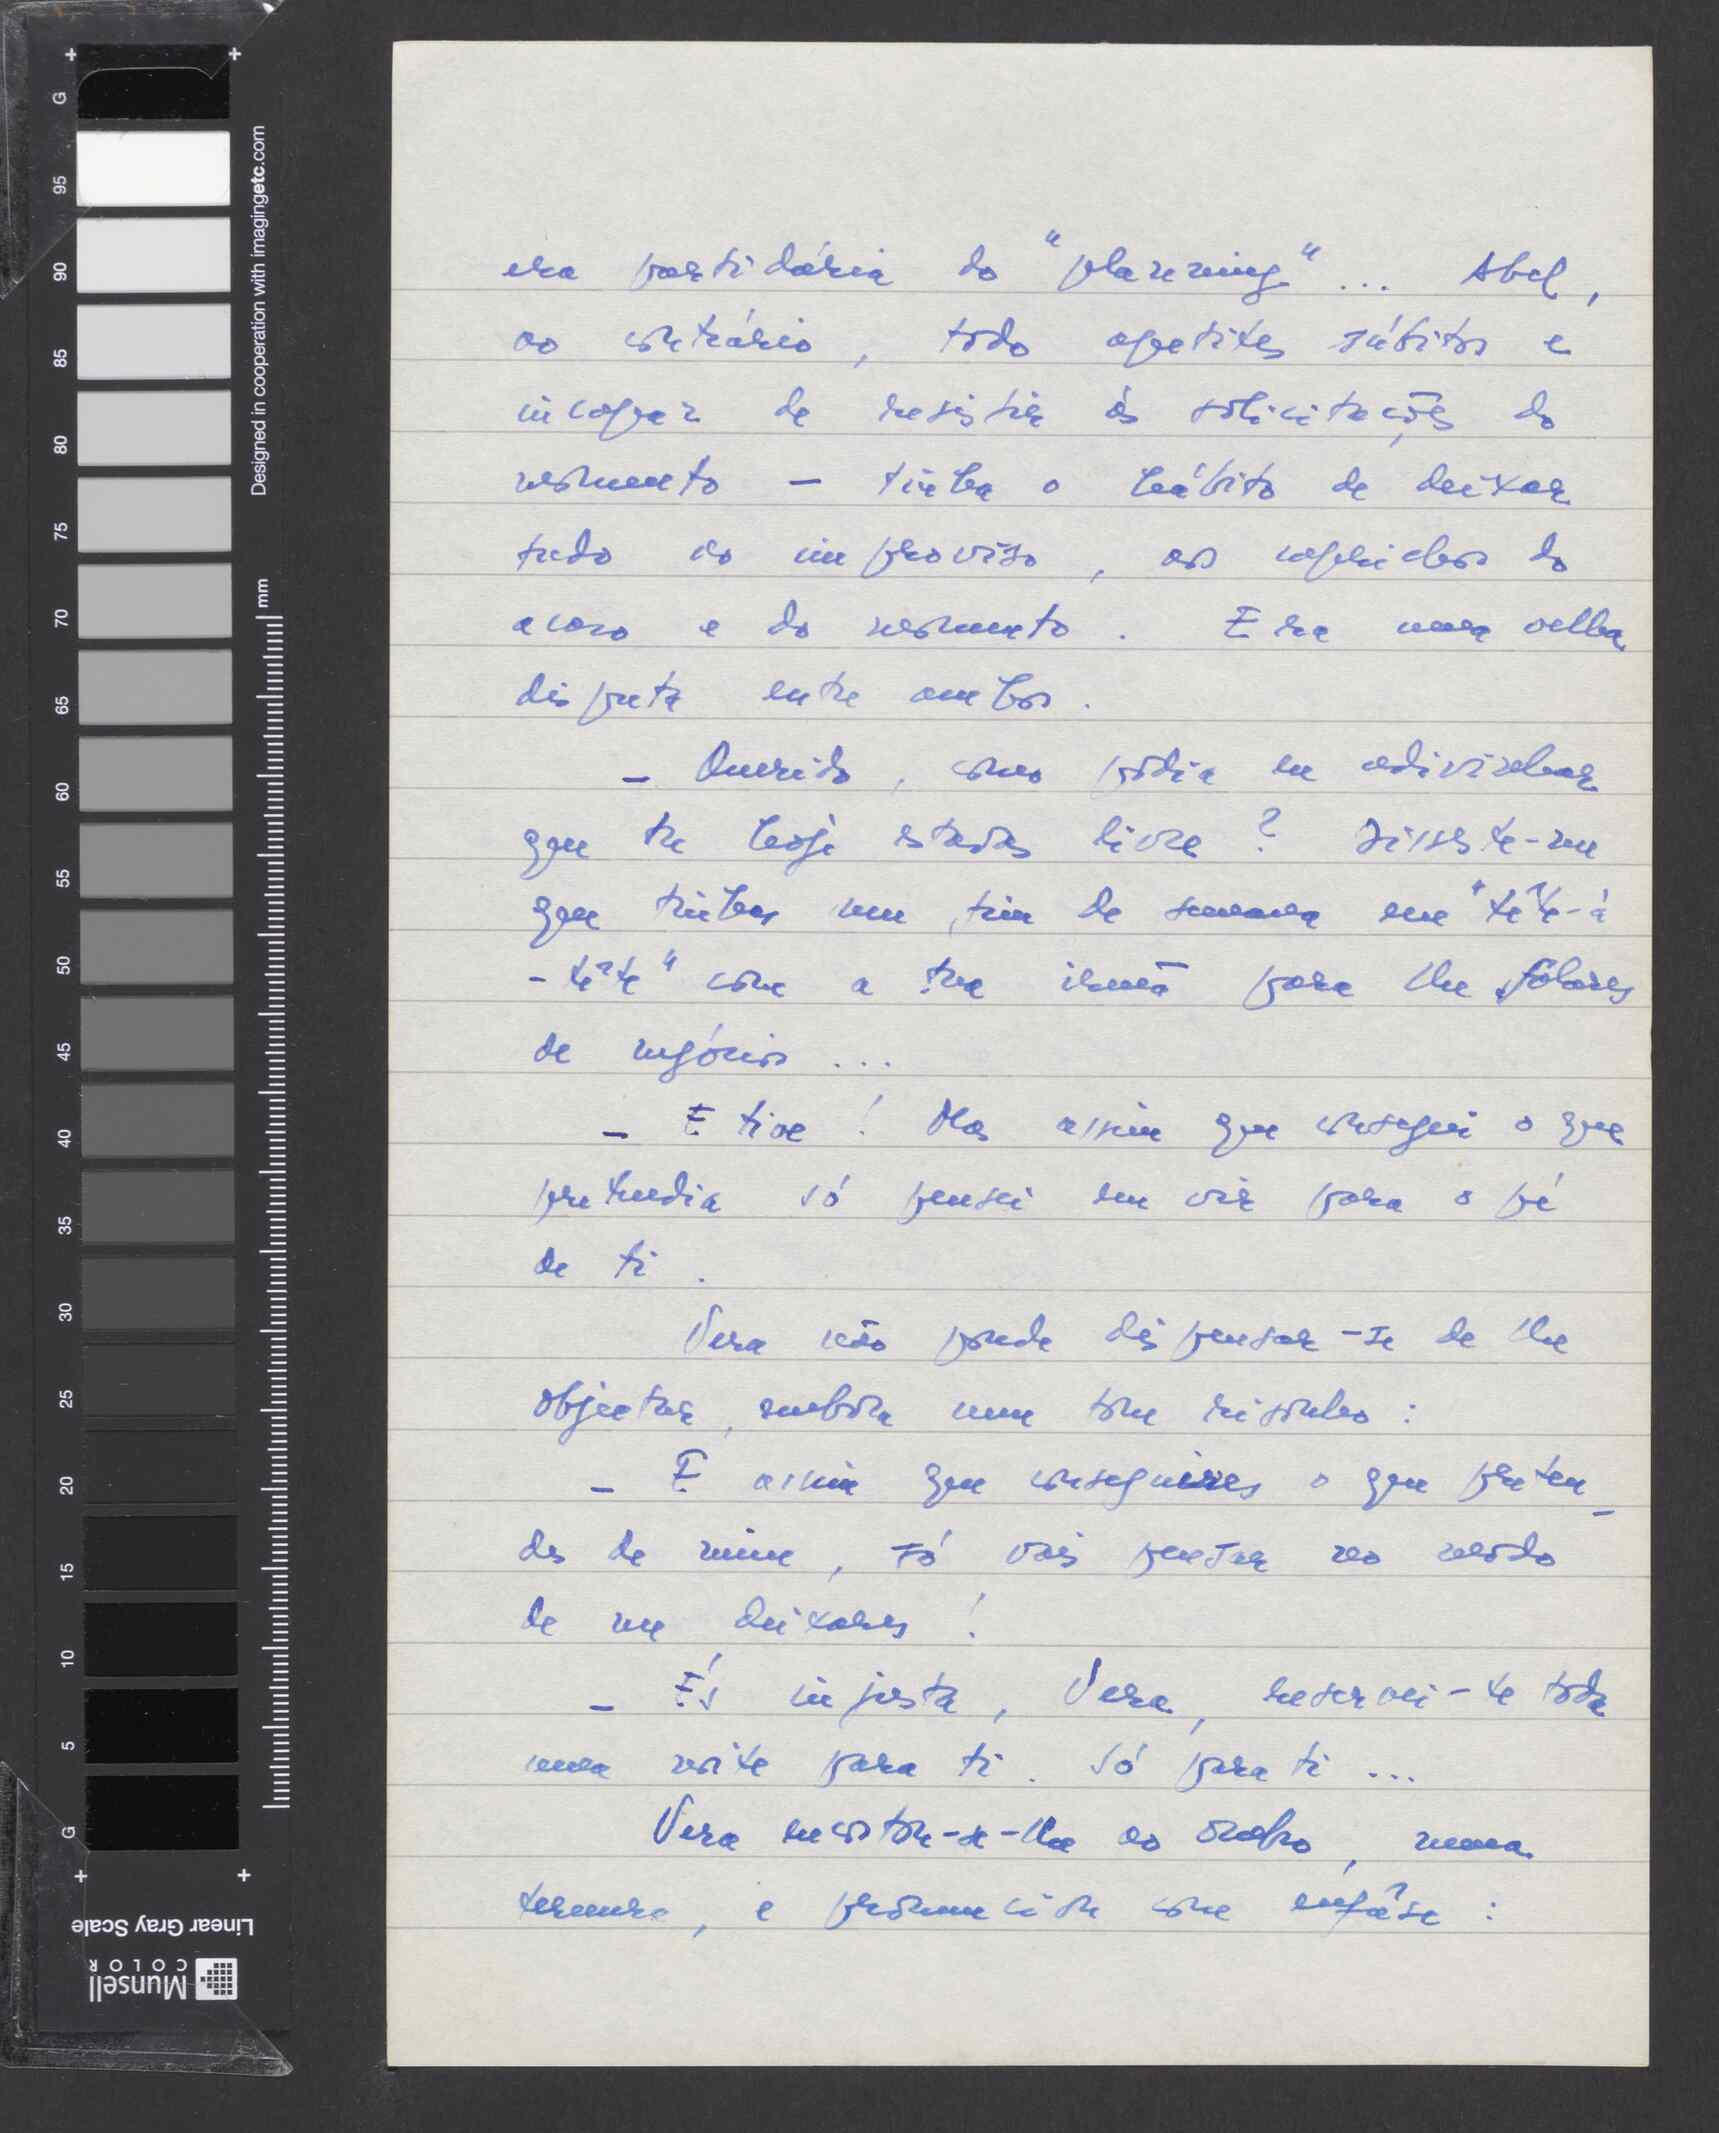 era partidária do "planning"... Abel,
ao contrário, todo apetites súbitos e
incapaz de resistir às solicitações do
momento – tinha o hábito de deixar
tudo ao improviso, aos caprichos do
acaso e do momento. Era uma velha
disputa entre ambos.
– Querido, como podia eu adivinhar
que tu hoje estavas livre? Disseste-me
que tinhas um fim de semana em "tête-à
-tête" com a tua irmã para lhe falares
de negócios...
– E tive! Mas assim que consegui o que
pretendia só pensei em vir para o pé
de ti.
Vera não pôde dispensar-se de lhe
objectar, embora num tom risonho:
– E assim que conseguires o que preten-
des de mim, só vais pensar no modo
de me deixares!
– És injusta, Vera, reservei-te toda
uma noite para ti. Só para ti...
Vera encostou-se-lhe ao ombro, numa
ternura, e pronunciou com enfâse:
G 95 90 85 80 75 70 65 60 55 50 45 40 35 30 25 20 15 10 5 G
Designed in cooperation with imagingetc.com
mm
Linear Gray Scale
Munsell
COLOR